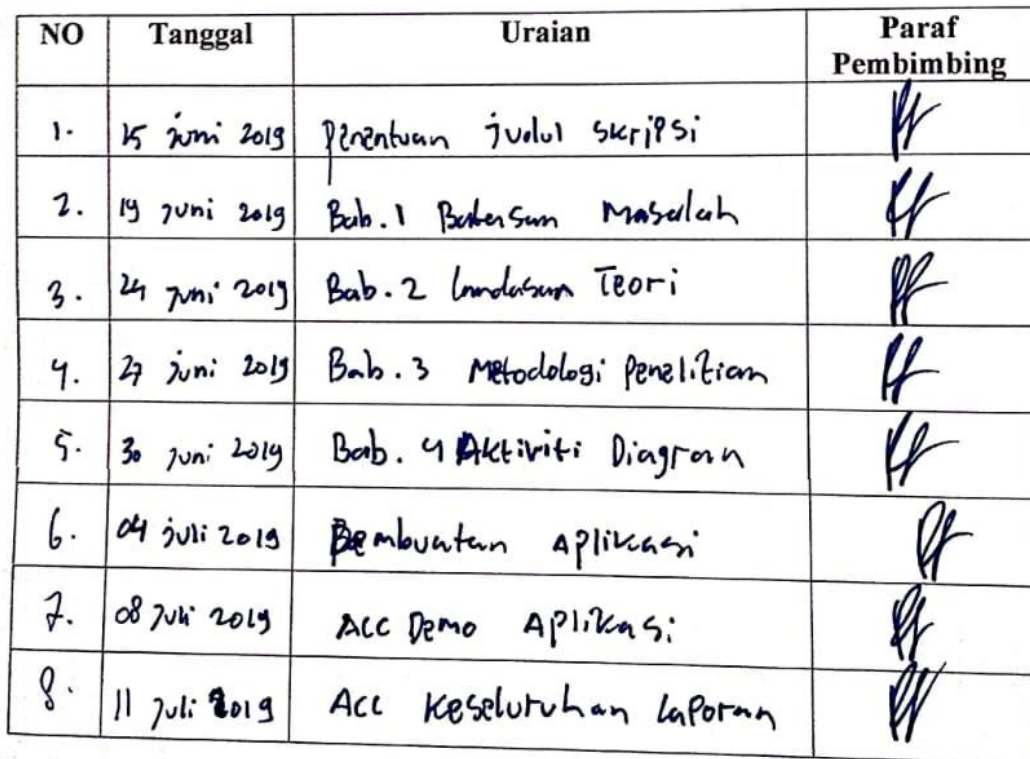 NO Tanggal Uraian Paraf Pembimbing
1. 15 juni 2019 Penentuan judul skripsi
2. 19 juni 2019 Bab. 1 Batasan Masalah
3. 24 juni 2019 Bab. 2 landasan Teori
4. 27 juni 2019 Bab. 3 Metodologi Penelitian
5. 30 juni 2019 Bab. 4 Aktiviti Diagram
6. 04 juli 2019 Pembuatan Aplikasi
7. 08 Juli 2019 Acc Demo Aplikasi
8. 11 juli 2019 Acc Keseluruhan Laporan